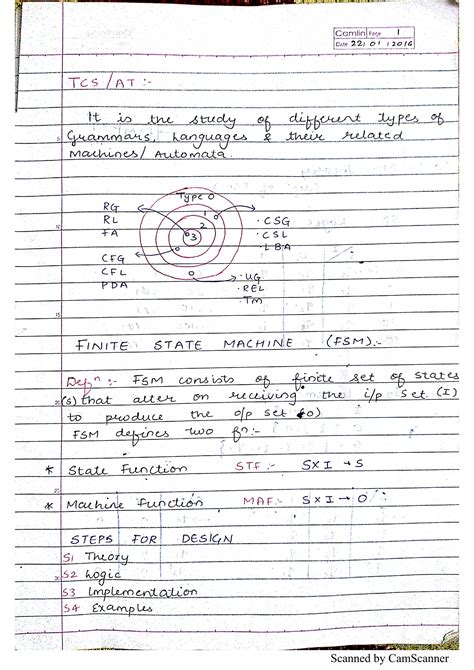 Camlin Page 1
Date 22 / 01 / 2016
TCS/AT :-
It is the study of different types of
Grammars, Languages & their related
Machines/ Automata.
Type 0
1
2
3
RG
RL
FA
CFG
CFL
PDA
· CSG
· CSL
· LBA
· UG
· REL
· TM
FINITE STATE MACHINE (FSM):-
Defⁿ :- FSM consists of finite set of states
(S) that alter on receiving the i/p set (I)
to produce the o/p set (O)
FSM defines two fⁿ:-
* State Function STF:- S×I → S
* Machine Function MAF:- S×I → O
STEPS FOR DESIGN
S1 Theory
S2 Logic
S3 Implementation
S4 Examples
Scanned by CamScanner